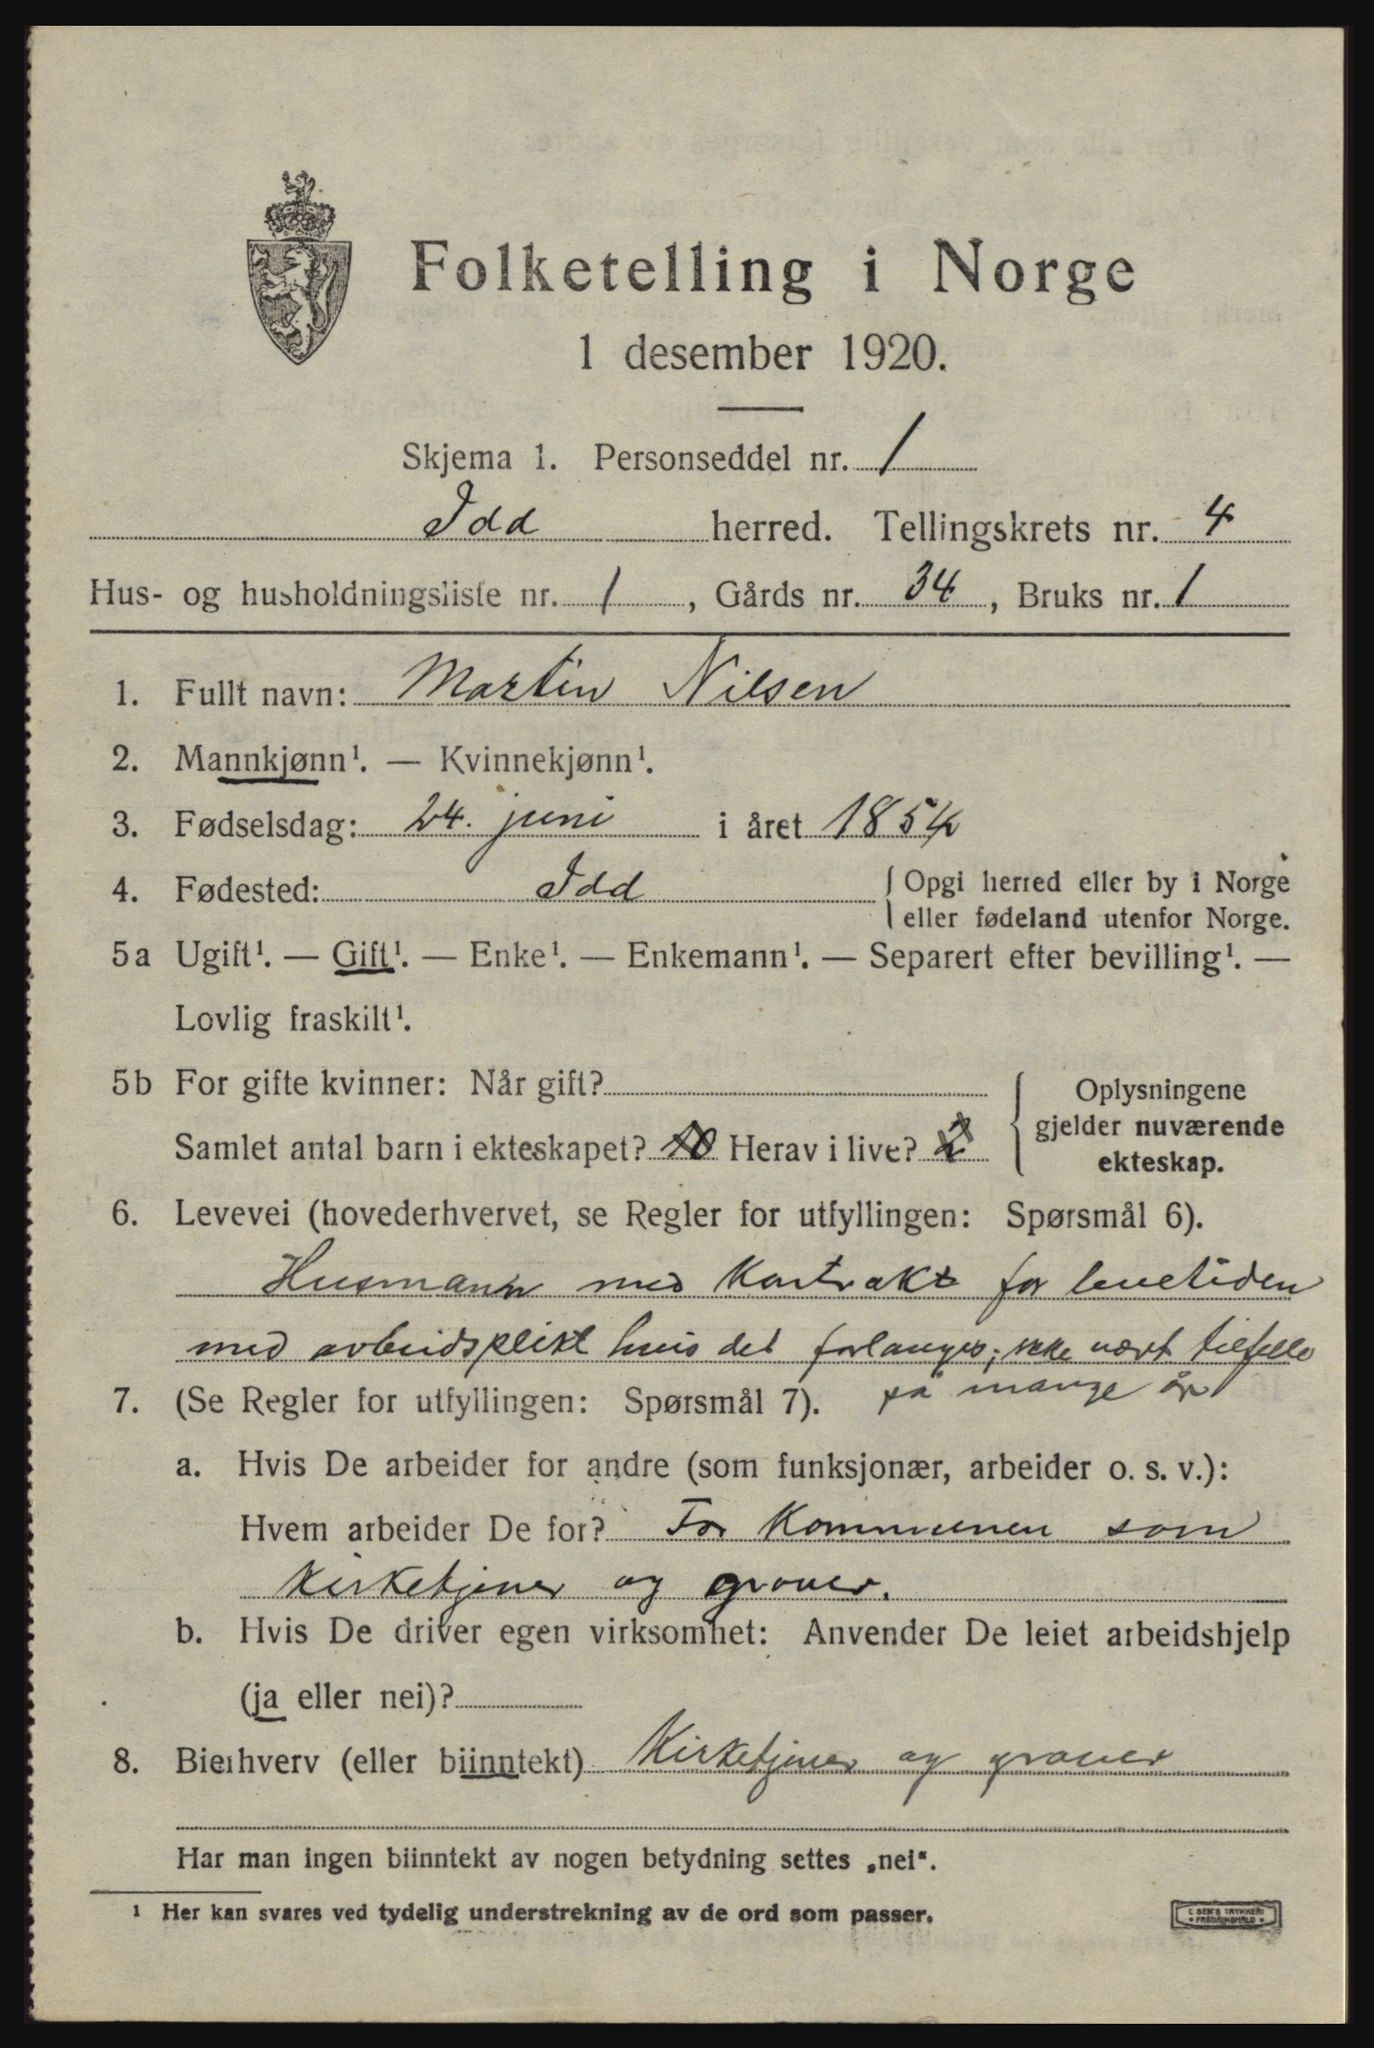 Folketelling i Norge
1 desember 1920.
Skjema 1. Personseddel nr. 1
Idd herred. Tellingskrets nr. 4
Hus- og husholdningsliste nr. 1, Gårds nr. 34, Bruks nr. 1
1. Fullt navn: Martin Nilsen
2. Mannkjønn¹. — Kvinnekjønn¹.
3. Fødselsdag: 24. juni i året 1854
4. Fødested: Idd { Opgi herred eller by i Norge
eller fødeland utenfor Norge.
5a Ugift¹. — Gift¹. — Enke¹. — Enkemann¹. — Separert efter bevilling¹. —
Lovlig fraskilt¹.
5b For gifte kvinner: Når gift?
Samlet antal barn i ekteskapet? 10 Herav i live? 2
Oplysningene
gjelder nuværende
ekteskap.
6. Levevei (hovederhvervet, se Regler for utfyllingen: Spørsmål 6).
Husmann med Kontrakt for levetiden
med arbeidsplikt hvis det forlanges; ikke vært tilfelle
på mange år
7. (Se Regler for utfyllingen: Spørsmål 7).
a. Hvis De arbeider for andre (som funksjonær, arbeider o. s. v.):
Hvem arbeider De for? For Kommunen som
Kirketjener og graver.
b. Hvis De driver egen virksomhet: Anvender De leiet arbeidshjelp
(ja eller nei)?
8. Bierhverv (eller biinntekt) Kirketjener og graver
Har man ingen biinntekt av nogen betydning settes „nei".
¹ Her kan svares ved tydelig understrekning av de ord som passer.
E SEM'S TRYKKERI
• FREDRIKSHALD •